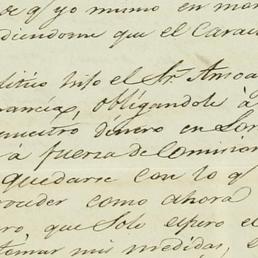 que yo mismo en man
diendome que el Carac
lítico hijo el Sr. Amoa
rancia, obligandole à
nuestro dinero en Lon
à fuerza de Comision
quedarse con lo q.
ceder como ahora
ro, que solo espero el
tomar mis medidas, e